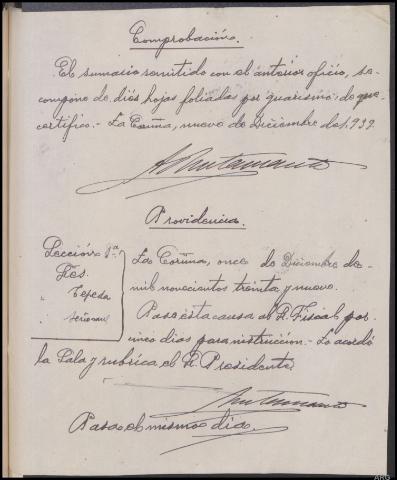 Comprobación.
El sumario remitido con el anterior oficio, se
compone de diós hojas foliadas por guarismo; de que
certifico.- La Coruña, nueve de Diciembre de 1.939.
Providencia.
Sección 1ª
Tepeda
La Coruña, once de Diciembre de
mil novecientos treinta y nueve.
Pase esta causa al Sr. Fiscal por
cinco dias para instrucción.- Lo acordó
la Sala y rubrica el Sr. Presidente.
Pasa el mismo día.
ARG